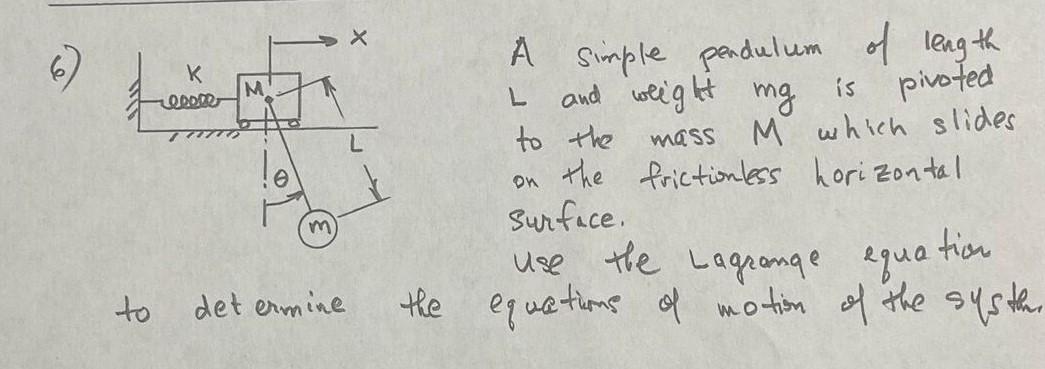 6)
X
K
M
L
θ
m
A simple pendulum of length
L and weight mg is pivoted
to the mass M which slides
on the frictionless horizontal
surface.
Use the Lagrange equation
to determine the equations of motion of the system.